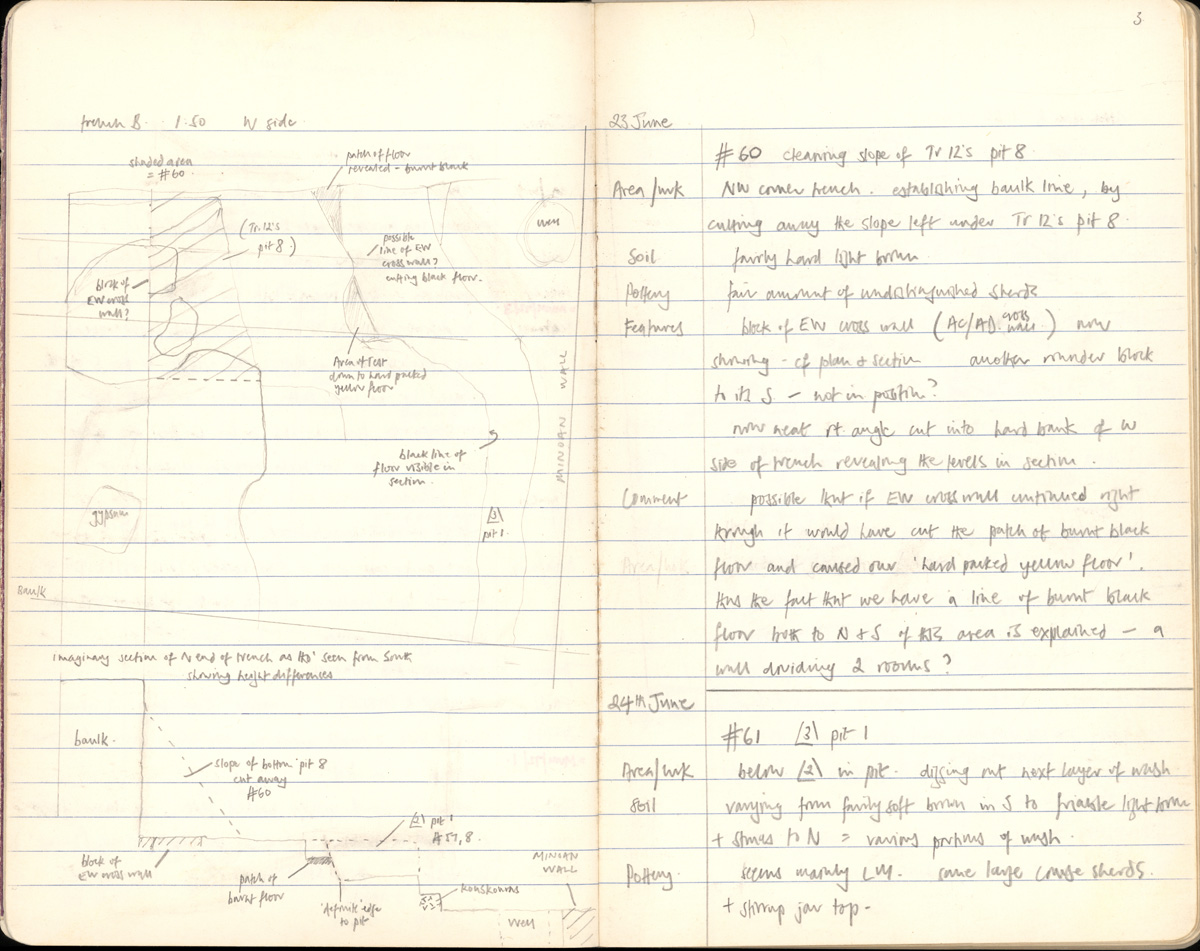 trench B. 1:50 W side
shaded area
= #60
patch of floor
revealed - burnt black
(Tr. 12's
pit 8)
possible
line of EW
cross wall?
cutting black floor.
well
block of
EW cross
wall?
Area of test
down to hard packed
yellow floor
MINOAN WALL
black line of
floor visible in
section.
gypsum
[3]
pit 1.
Baulk
imaginary section of N end of trench as tho' seen from South
showing height differences
baulk.
slope of bottom pit 8
cut away
#60
[2] pit 1
#57,8
block of
EW cross wall
patch of
burnt floor
'definite' edge
to pit
kouskouras
MINOAN
WALL
Well
3
23 June
#60 cleaning slope of Tr 12's pit 8
Area/wk NW corner trench. establishing baulk line, by
cutting away the slope left under Tr 12's pit 8.
Soil fairly hard light brown.
Pottery fair amount of undistinguished sherds
Features block of EW cross wall (AC/AD cross wall) now
showing - cf plan & section another rounder block
to its S - not in position?
now neat rt. angle cut into hard bank of W
side of trench revealing the levels in section.
Comment possible that if EW cross wall continued right
through it would have cut the patch of burnt black
floor and caused our 'hard packed yellow floor'.
Area/wk
thus the fact that we have a line of burnt black
floor both to N & S of this area is explained - a
wall dividing 2 rooms?
24th June
#61 [3] pit 1
Area/wk below [2] in pit. digging out next layer of wash
Soil varying from fairly soft brown in S to friable light brown
+ stones to N = varying portions of wash.
Pottery. seems mainly LM. some large coarse sherds.
+ stirrup jar top -